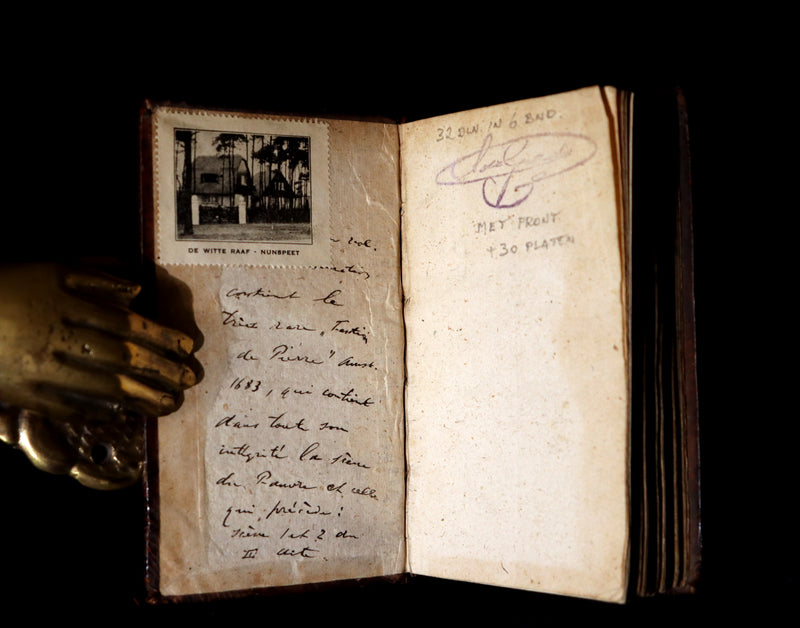 DE WITTE RAAF - NUNSPEET
vol.
contient le
très rare „Festin
de Pierre" Amst.
1683, qui contient
dans toute son
intégrité la scène
du Pauvre et celle
qui précède:
scène 1 et 2 du
III acte.
32 DLN. IN 6 BND.
MET FRONT.
+30 PLATEN